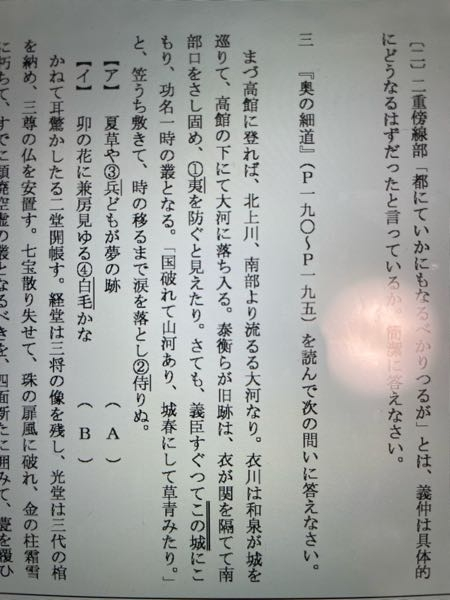 (二)二重傍線部「都にていかにもなるべかりつるが」とは、義仲は具体的
にどうなるはずだったと言っているか。簡潔に答えなさい。
三 『奥の細道』(P一九〇〜P一九五)を読んで次の問いに答えなさい。
まづ高館に登れば、北上川、南部より流るる大河なり。衣川は和泉が城を
巡りて、高館の下にて大河に落ち入る。泰衡らが旧跡は、衣が関を隔てて南
部口をさし固め、①夷を防ぐと見えたり。さても、義臣すぐつてこの城にこ
もり、功名一時の叢となる。「国破れて山河あり、城春にして草青みたり。」
と、笠うち敷きて、時の移るまで涙を落とし②侍りぬ。
【ア】 夏草や③兵どもが夢の跡 (A)
【イ】 卯の花に兼房見ゆる④白毛かな (B)
かねて耳驚かしたる二堂開帳す。経堂は三将の像を残し、光堂は三代の棺
を納め、三尊の仏を安置す。七宝散り失せて、珠の扉風に破れ、金の柱霜雪
に朽ちて、すでに頽廃空虚の叢となるべきを、四面新たに囲みて、甍を覆ひ